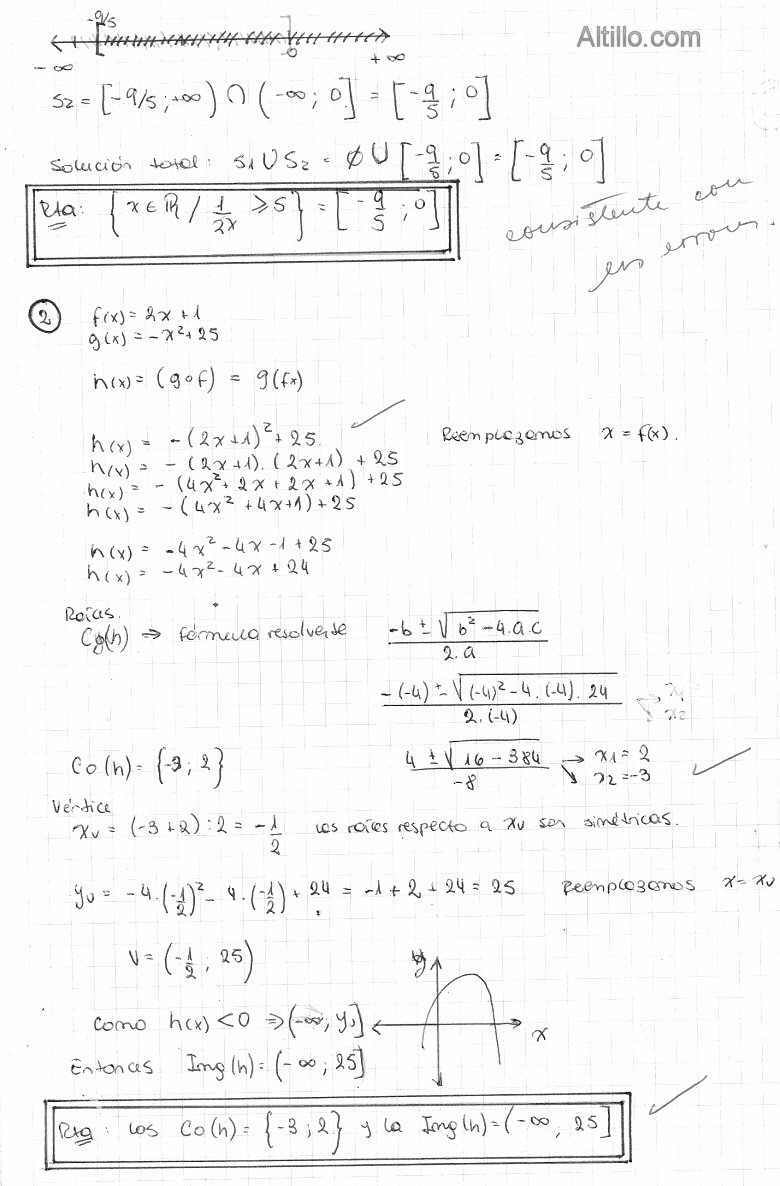 -9/5
Altillo.com
0
- ∞ + ∞
S2 = [-9/5 ; +∞) ∩ (-∞ ; 0] = [-9/5 ; 0]
Solución total: S1 U S2 = ∅ U [-9/5 ; 0] = [-9/5 ; 0]
Rta: {x ∈ R / 1/2x ≥ 5} = [-9/5 ; 0]
consistente con
errores.
2 f(x) = 2x + 1
g(x) = -x² + 25
h(x) = (g∘f) = g(fx)
h(x) = -(2x+1)² + 25 Reemplazamos x = f(x).
h(x) = - (2x+1) . (2x+1) + 25
h(x) = - (4x² + 2x + 2x + 1) + 25
h(x) = - (4x² + 4x + 1) + 25
h(x) = -4x² - 4x - 1 + 25
h(x) = -4x² - 4x + 24
Raíces.
Co(h) ⇒ fórmula resolvente -b ± √b² - 4.a.c / 2.a
-(-4) ± √(-4)² - 4.(-4).24 / 2.(-4) → x1 x2
Co(h) = {-3 ; 2} 4 ± √16 - 384 / -8 → x1 = 2 x2 = -3
Vértice
xv = (-3 + 2) : 2 = -1/2 Las raíces respecto a xv son simétricas.
yv = -4.(-1/2)² - 4.(-1/2) + 24 = -1 + 2 + 24 = 25 Reemplazamos x = xv
V = (-1/2 ; 25)
y
Como h(x) < 0 ⇒ (-∞, yv]
x
Entonces Img(h) = (-∞ ; 25]
Rta : Los Co(h) = {-3 ; 2} y la Img(h) = (-∞ , 25]